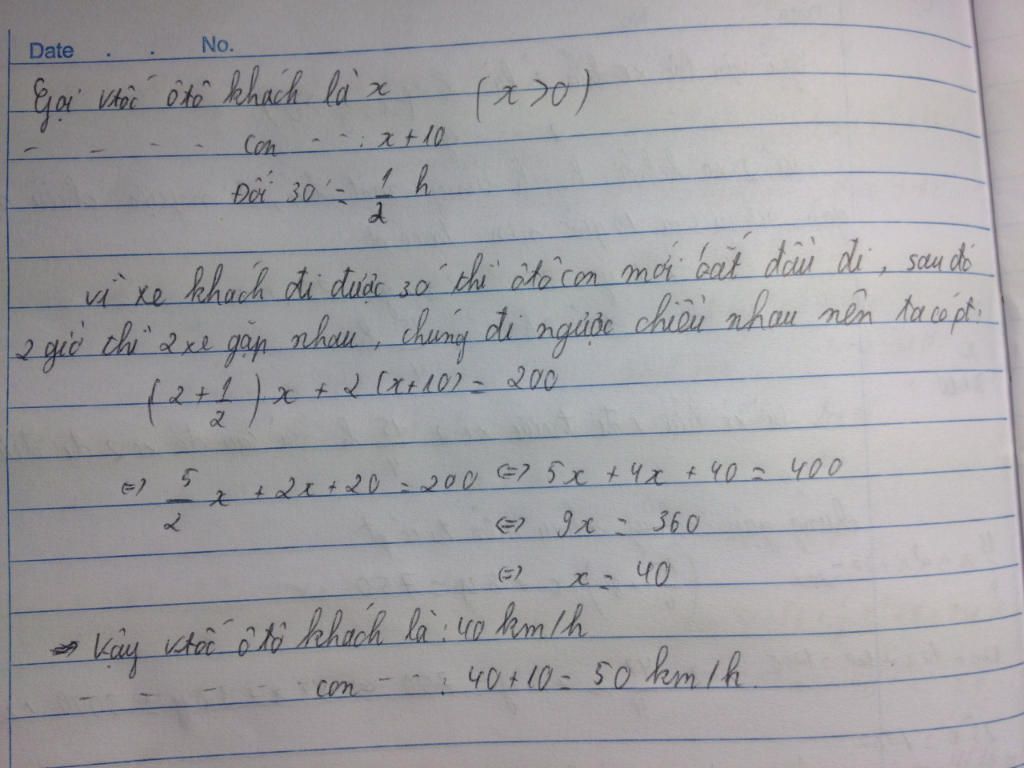 Date . . No.
Gọi vtốc ôtô khách là x (x>0)
- - - - con - - : x+10
Đổi 30' = 1/2 h
vì xe khách đi được 30' thì ôtô con mới bắt đầu đi, sau đó
2 giờ thì 2 xe gặp nhau, chúng đi ngược chiều nhau nên ta có pt:
(2+1/2)x + 2(x+10) = 200
⇔ 5/2 x + 2x + 20 = 200 ⇔ 5x + 4x + 40 = 400
⇔ 9x = 360
⇔ x = 40
⇒ Vậy vtốc ôtô khách là : 40 km/h
con - - : 40+10 = 50 km/h.